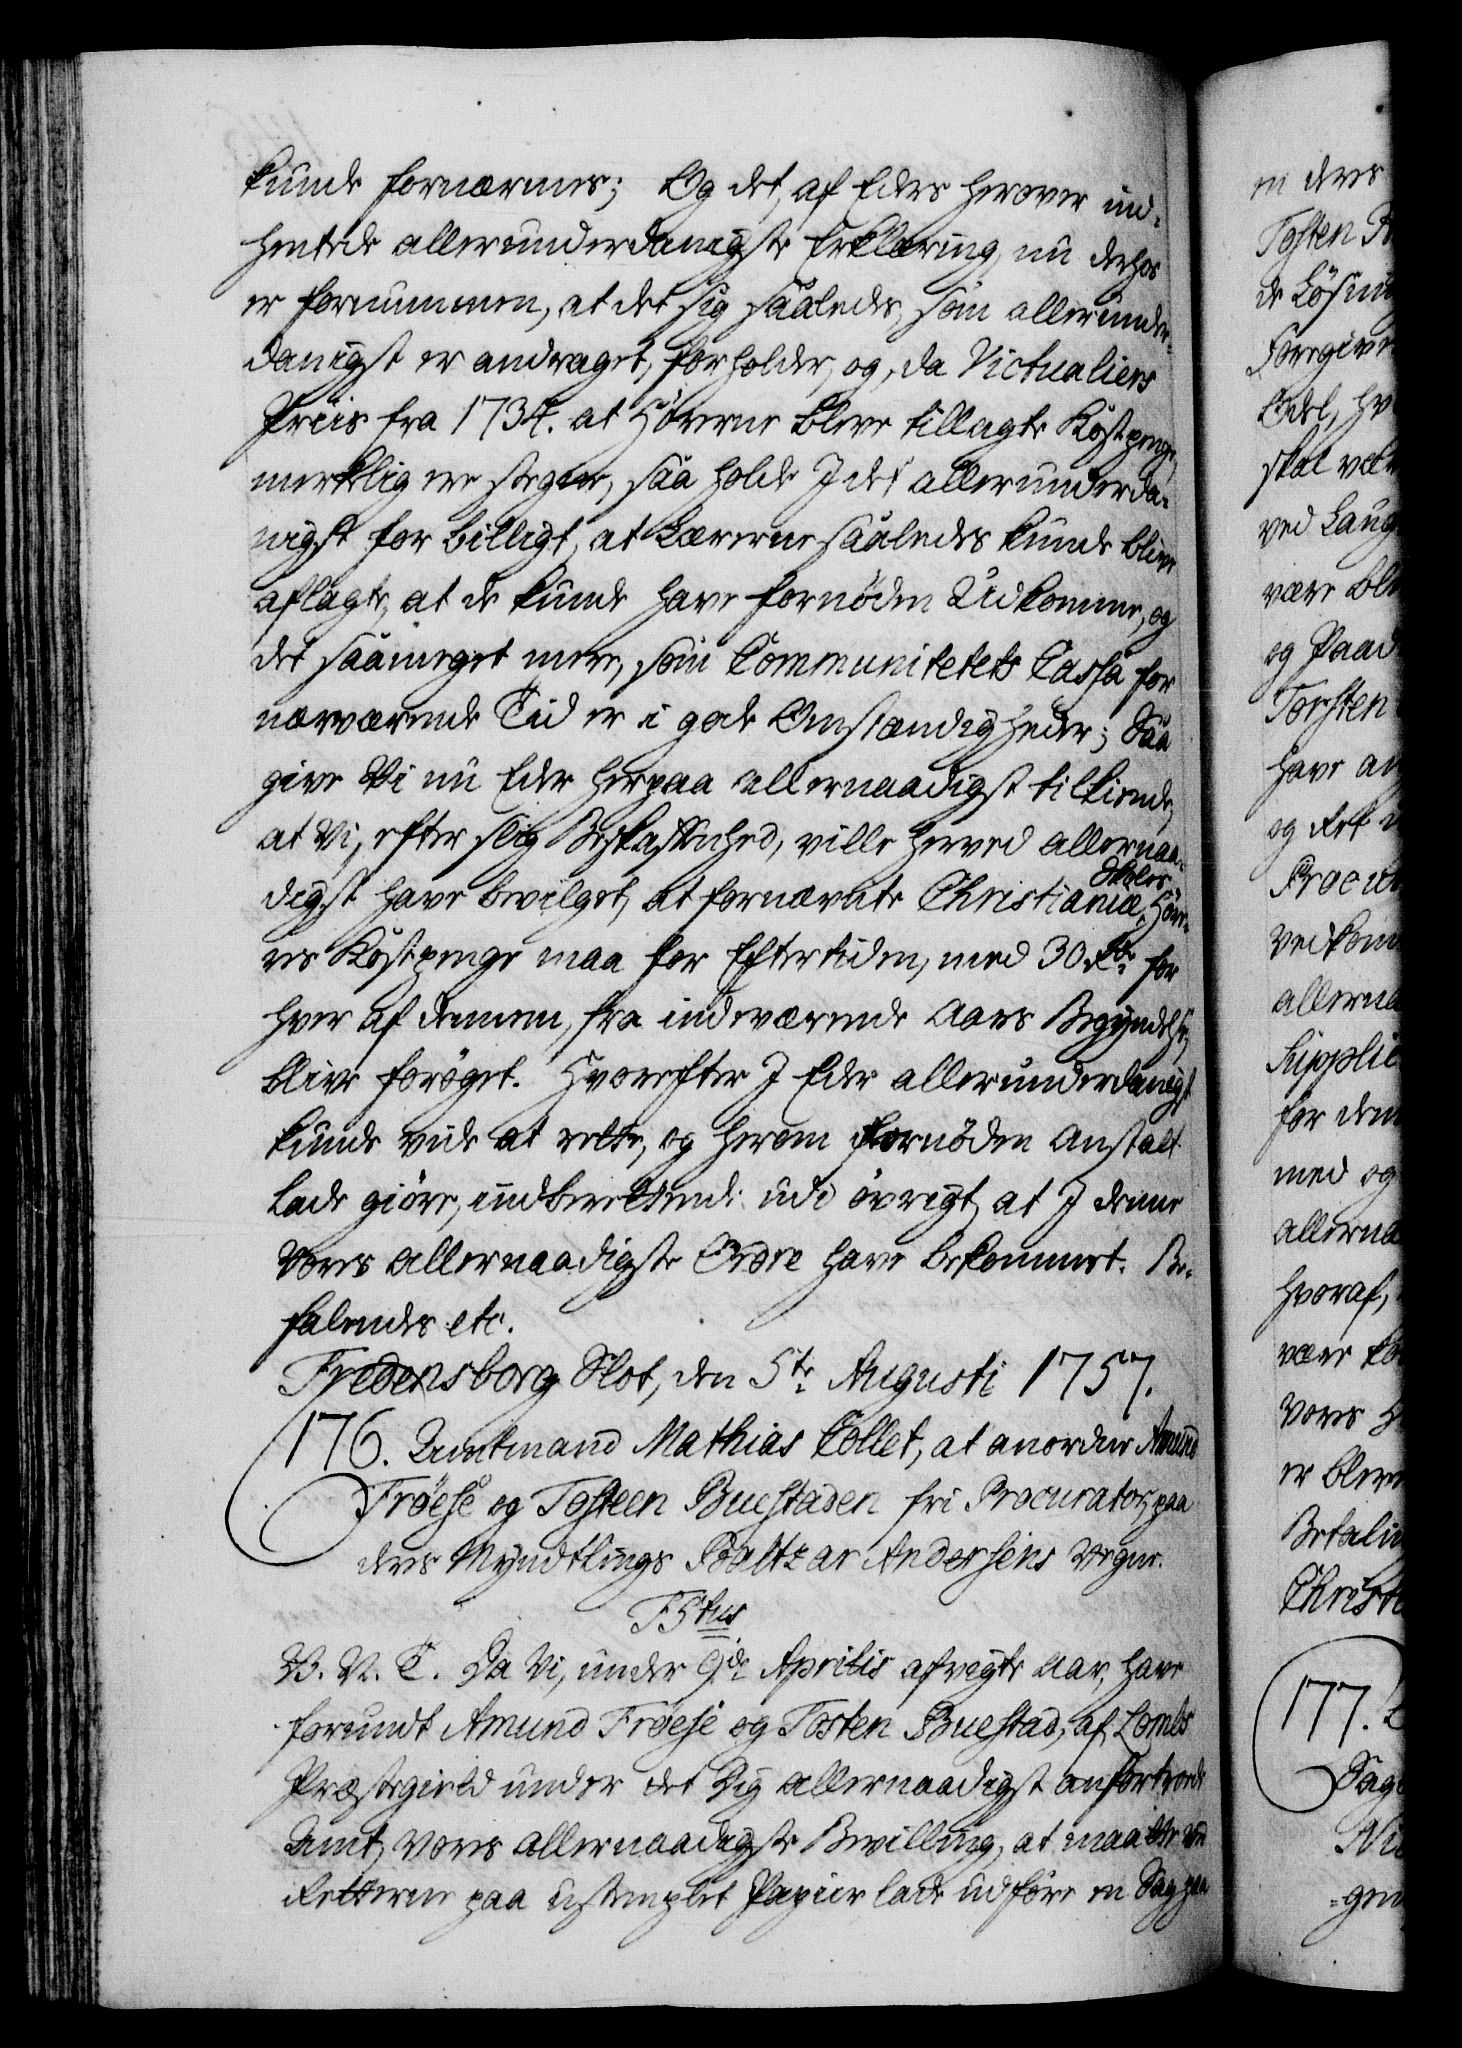 kunde fornærmes; Og det, af Eders herover ind-
hentede allerunderdanigste Erklæring, nu derhos
er fornummen, at det sig saaledes, som allerunder-
danigst er andraget, forholder, og, da Victualiers
Priis fra 1734. at Hørerne bleve tillagte Kostpenge,
merkelig ere stegne, saa holde I det allerunderda-
nigst for billigt, at Lærerne saaledes kunde blive
aflagte, at de kunde have fornøden Udkomme, og
det saameget mere, som Communitetets Cassa for
nærværende Tid er i gode Omstændigheder; Saa
give Vi nu Eder herpaa allernaadigst tilkiende,
at Vi, efter slig Beskaffenhed, ville herved allernaa-
digst have bevilget, at fornævnte Christianiæ Skoles Høre-
res Kostpenge maa for Eftertiden, med 30 rdr. for
hver af dennem, fra indeværende Aars Begyndelse,
blive forøget. Hvorefter I Eder allerunderdanigst
kunde vide at rette, og herom fornøden Anstalt
lade giøre, indberettende udi øvrigt, at I denne
Vores allernaadigste Ordre have bekommet. Be-
falendes etc.
Fredensborg Slot, den 5te Augusti 1757.
176. Amtmand Mathias Collet, at anordne Amund
Frøese og Tosteen Buestaden fri Procurator, paa
deres Myndtlings Baltzar Andersens Vegne.
F5tus
V. V. T. Da Vi, under 9de Aprilis afvigte Aar, have
forundt Amund Frøese og Tosten Buestad, af Lombs
Præstegield under det Dig allernaadigst anfortroede
Amt, Vores allernaadigste Bevilling, at maatte ved
Retterne paa ustemplet Papiir lade udføre en Sag paa